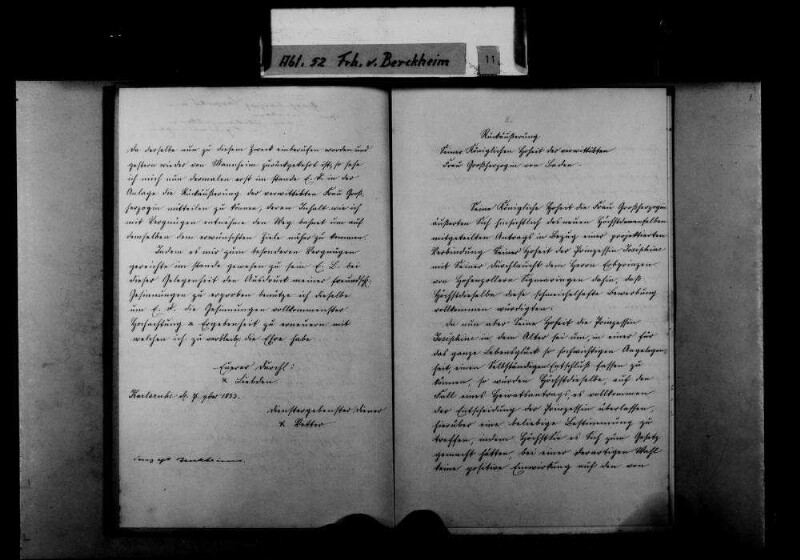 Abt. 52 Frh. v. Berckheim
11
Da derselbe nun zu diesem Zweck einberufen worden und
gestern wieder von Mannheim zurückgekehrt ist, so sehe
ich mich nun dermalen erst im stande E. L. in der
Anlage die Rückäußerung der verwittibten Frau Groß-
herzogin mitteilen zu können, deren Inhalt wie ich
mit Vergnügen entnehme den Weg bahnet um auf
demselben dem erwünschten Ziele näher zu kommen.
Indem es mir zum besonderen Vergnügen
gereichte im stande gewesen zu sein E. L. bei
dieser Gelegenheit den Ausdruck meiner freundsch.
Gesinnungen zu erproben benütze ich dieselbe
um E. L. die Gesinnungen vollkommenster
Hochachtung & Ergebenheit zu erneuern mit
welchen ich zu verbleib. die Ehre habe.
Euerer Durchl:
& Liebden
Karlsruhe d. 7. 1833.
dienstergebenster Diener
& Vetter
Berckheim.
Rückäußerung
Seiner Königlichen Hoheit der verwittibten
Frau Großherzogin von Baden.
Seine Königliche Hoheit die Frau Großherzogin
äußerten Sich hinsichtlich des neuen Höchstdenenselben
mitgeteilten Antrags in Bezug einer projektierten
Verbindung Seiner Hoheit der Prinzessin Josephine
mit Seiner Durchlaucht dem Herrn Erbprinzen
von Hohenzollern Sigmaringen dahin, daß
Höchstdieselbe diese schmeichelhafte Bewerbung
vollkommen würdigten.
Da nun aber Seine Hoheit die Prinzessin
Josephine in dem Alter sei um, in einer für
das ganze Lebensglück so hochwichtigen Angelegen-
heit, einen Selbständigen Entschluß fassen zu
können, so würden Höchstdieselbe, auf den
Fall eines Heiratsantrags, es vollkommen
der Entscheidung der Prinzessin überlassen,
hierüber eine beliebige Bestimmung zu
treffen, indem Höchstsie es Sich zum Gesetz
gemacht hätten, bei einer derartigen Wahl
keine positive Einwirkung auf den von